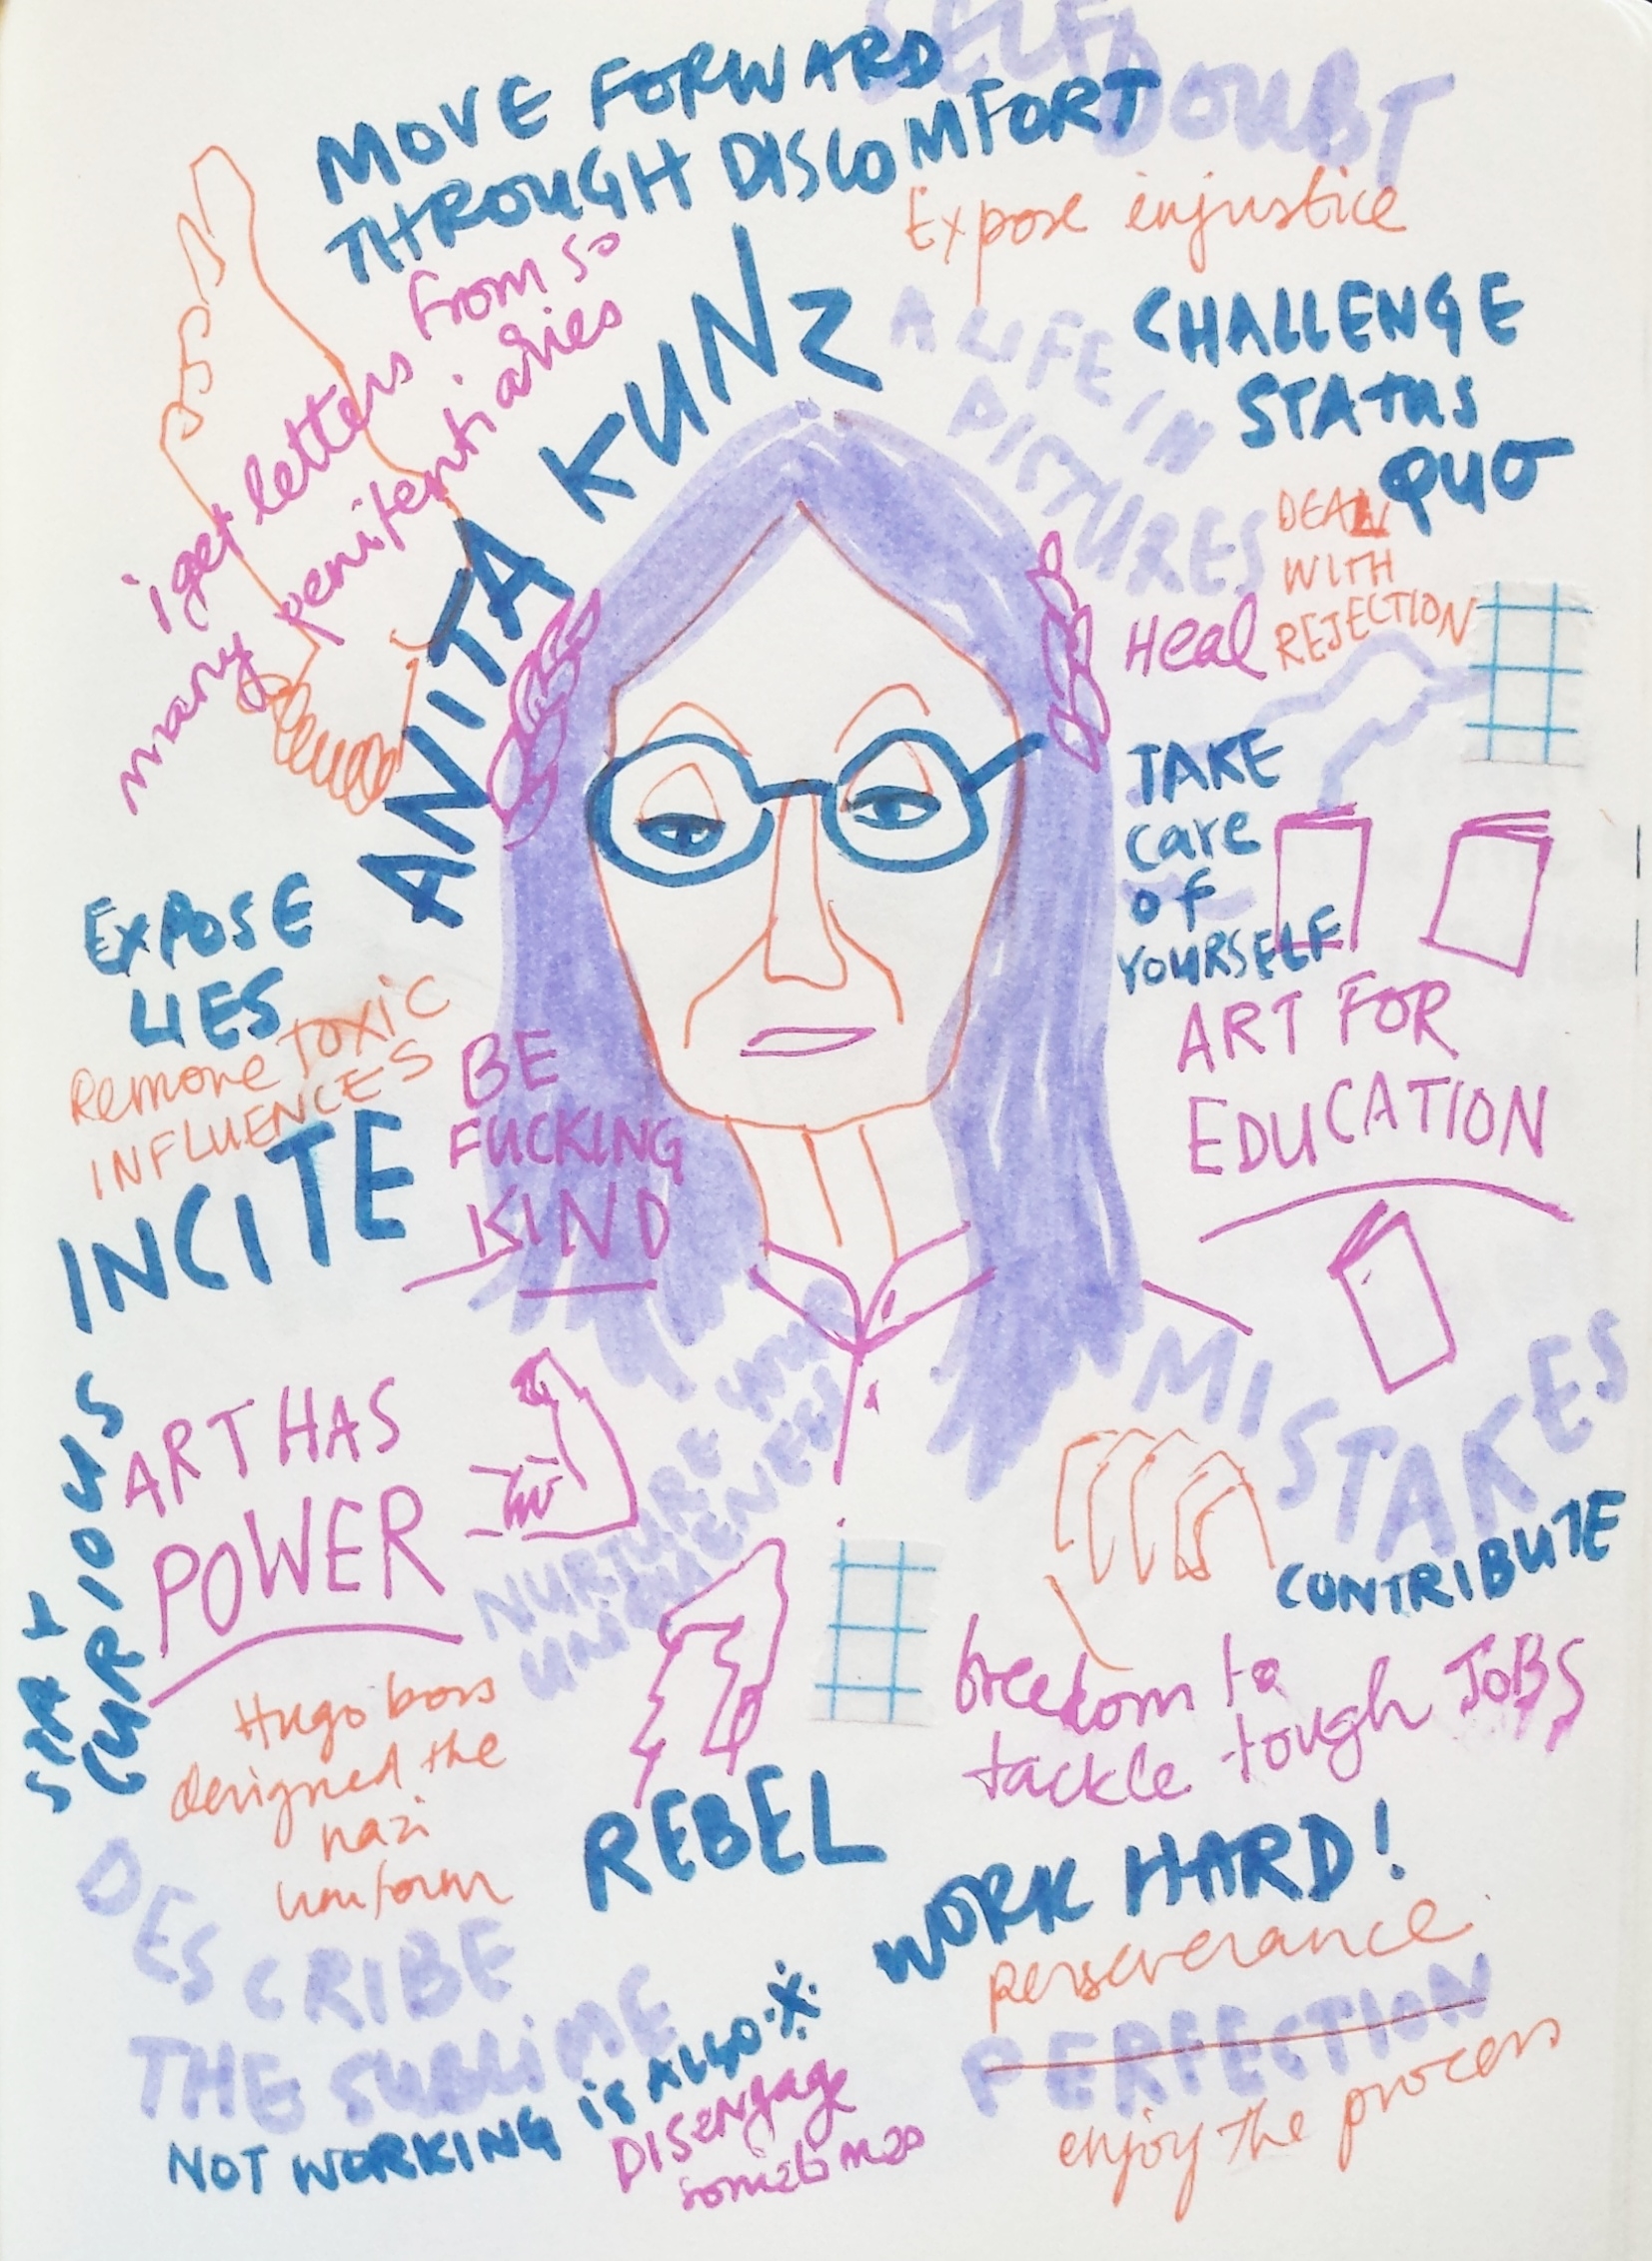 SELF
DOUBT
MOVE FORWARD
THROUGH DISCOMFORT
Expose injustice
i get letters from so
many penitentiaries
ANITA KUNZ
A LIFE IN
PICTURES
CHALLENGE
STATUS
QUO
DEAL
WITH
REJECTION
Heal
TAKE
care
of
YOURSELF
EXPOSE
LIES
Remove TOXIC
INFLUENCES
INCITE
BE
FUCKING
KIND
ART FOR
EDUCATION
MISTAKES
STAY
CURIOUS
ART HAS
POWER
NURTURE YOUR
UNIQUENESS
CONTRIBUTE
freedom to
tackle tough JOBS
Hugo boss
designed the
nazi
uniform
REBEL
WORK HARD!
perseverance
PERFECTION
enjoy the process
DESCRIBE
THE SUBLIME
NOT WORKING is ALSO
DISENgage
sometimes